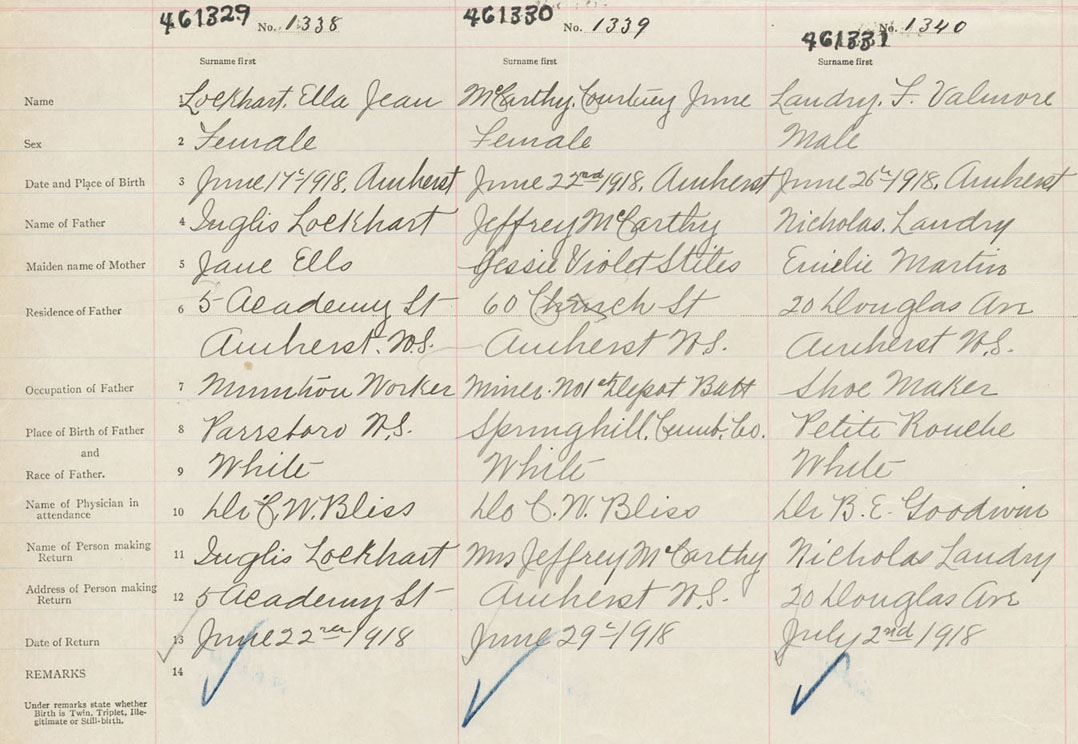 461329 No. 1338 461330 No. 1339 461331 No. 1340
Surname first Surname first Surname first
Name 1 Lockhart. Ella Jean McCarthy, Courtney June Landry. F. Valmore
Sex 2 Female Female Male
Date and Place of Birth 3 June 17th 1918. Amherst June 22nd 1918. Amherst June 26th 1918. Amherst
Name of Father 4 Inglis Lockhart Jeffrey McCarthy Nicholas. Landry
Maiden name of Mother 5 Jane Ells Jessie Violet Stiles Emelie Martin
Residence of Father 6 5 Academy St 60 Church St 20 Douglas Ave
Amherst. N.S. Amherst N.S. Amherst N.S.
Occupation of Father 7 Munition Worker Miner. No 1 st Depot Batt Shoe Maker
Place of Birth of Father 8 Parrsboro N.S. Springhill, Cumb. Co. Petite Rouche
and
Race of Father. 9 White White White
Name of Physician in
attendance 10 Dr C. W. Bliss Do C. W. Bliss Dr B. E. Goodwin
Name of Person making
Return 11 Inglis Lockhart Mrs Jeffrey McCarthy Nicholas Landry
Address of Person making
Return 12 5 Academy St Amherst N.S. 20 Douglas Ave
Date of Return 13 June 22nd 1918 June 29th 1918 July 2nd 1918
REMARKS 14
Under remarks state whether
Birth is Twin, Triplet, Ille-
gitimate or Still-birth.